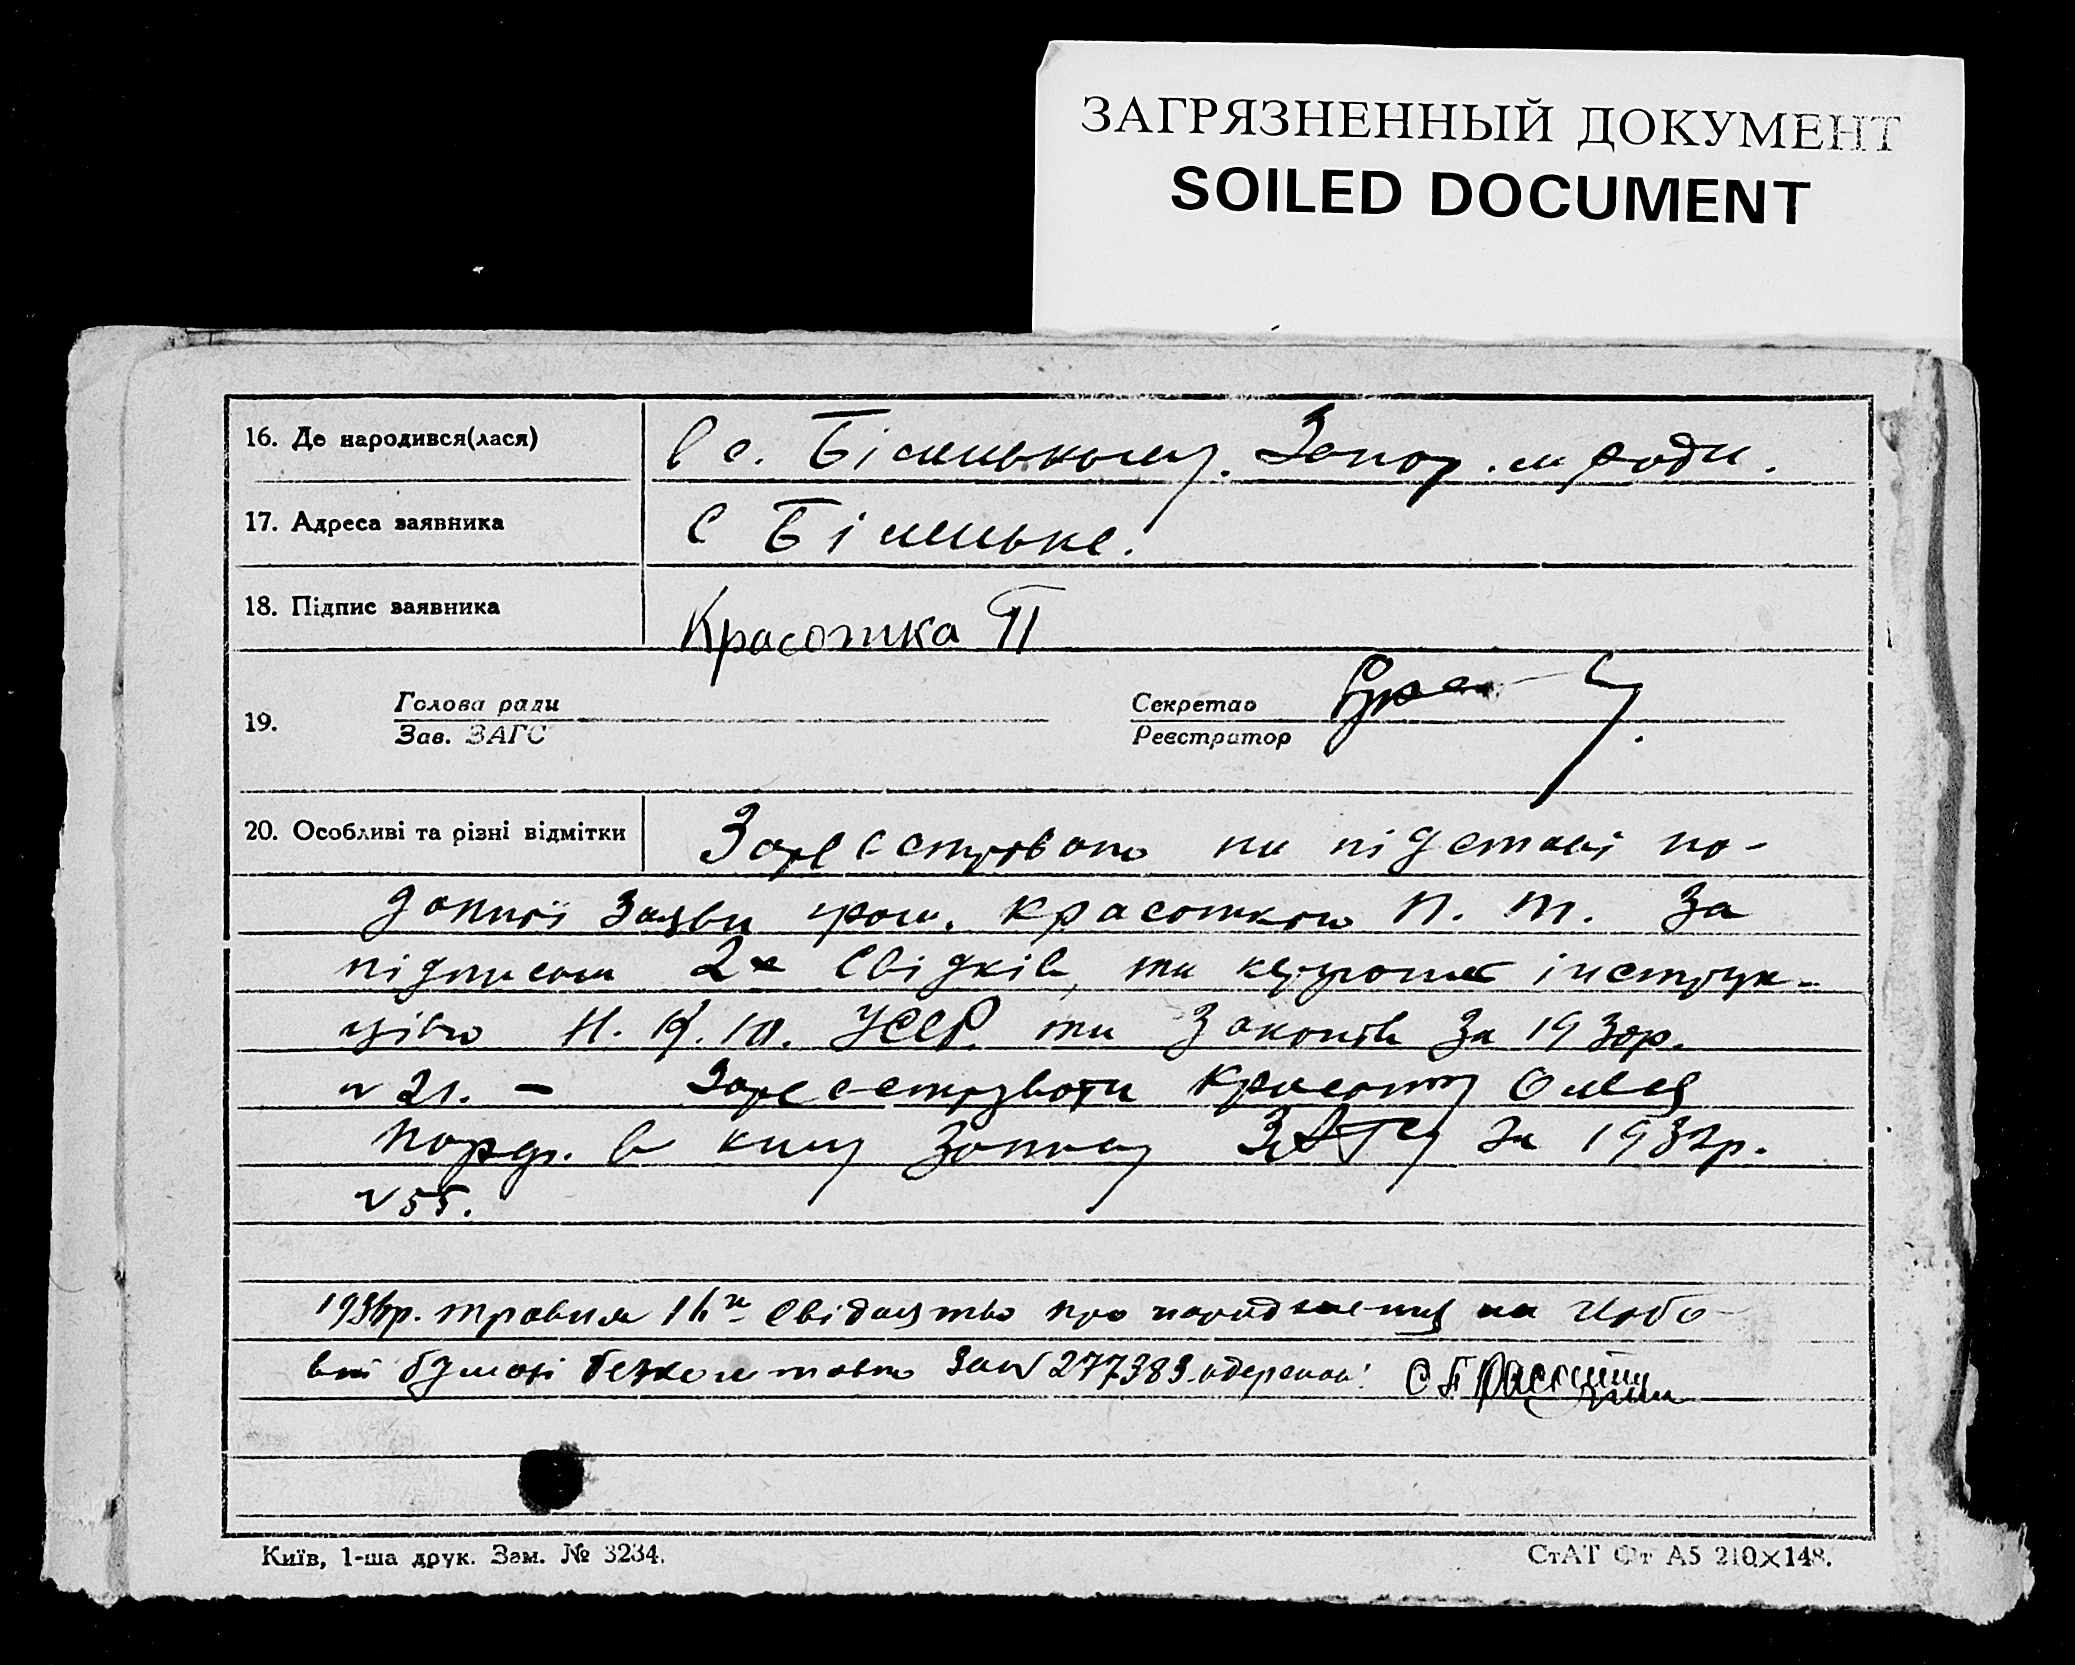 ЗАГРЯЗНЕННЫЙ ДОКУМЕНТ
SOILED DOCUMENT
16. Де народився(лася) В с. Біленькому. Запор. м ради.
17. Адреса заявника С Біленьке.
18. Підпис заявника Красотка П
19. Голова ради Секретар
Зав. ЗАГС Реєстратор
20. Особливі та різні відмітки Зареєстровано на підставі по-
данної заяви гром. Красоткою П. Т. За
підписом 2х свідків, та інструк-
цією Н. К. Ю. УССР. та Законів за 1930р.
№ 21. – Зареєструвати Красотку
в книгу запису ЗАГСу за 1932р.
№ 55.
травня 16 Свідоцтво про народження на гербо-
вій бумазі безкоштовно за № 277383 одержал:
Київ, 1-ша друк. Зам. № 3234.
СтАТ Фт А5 210×148.